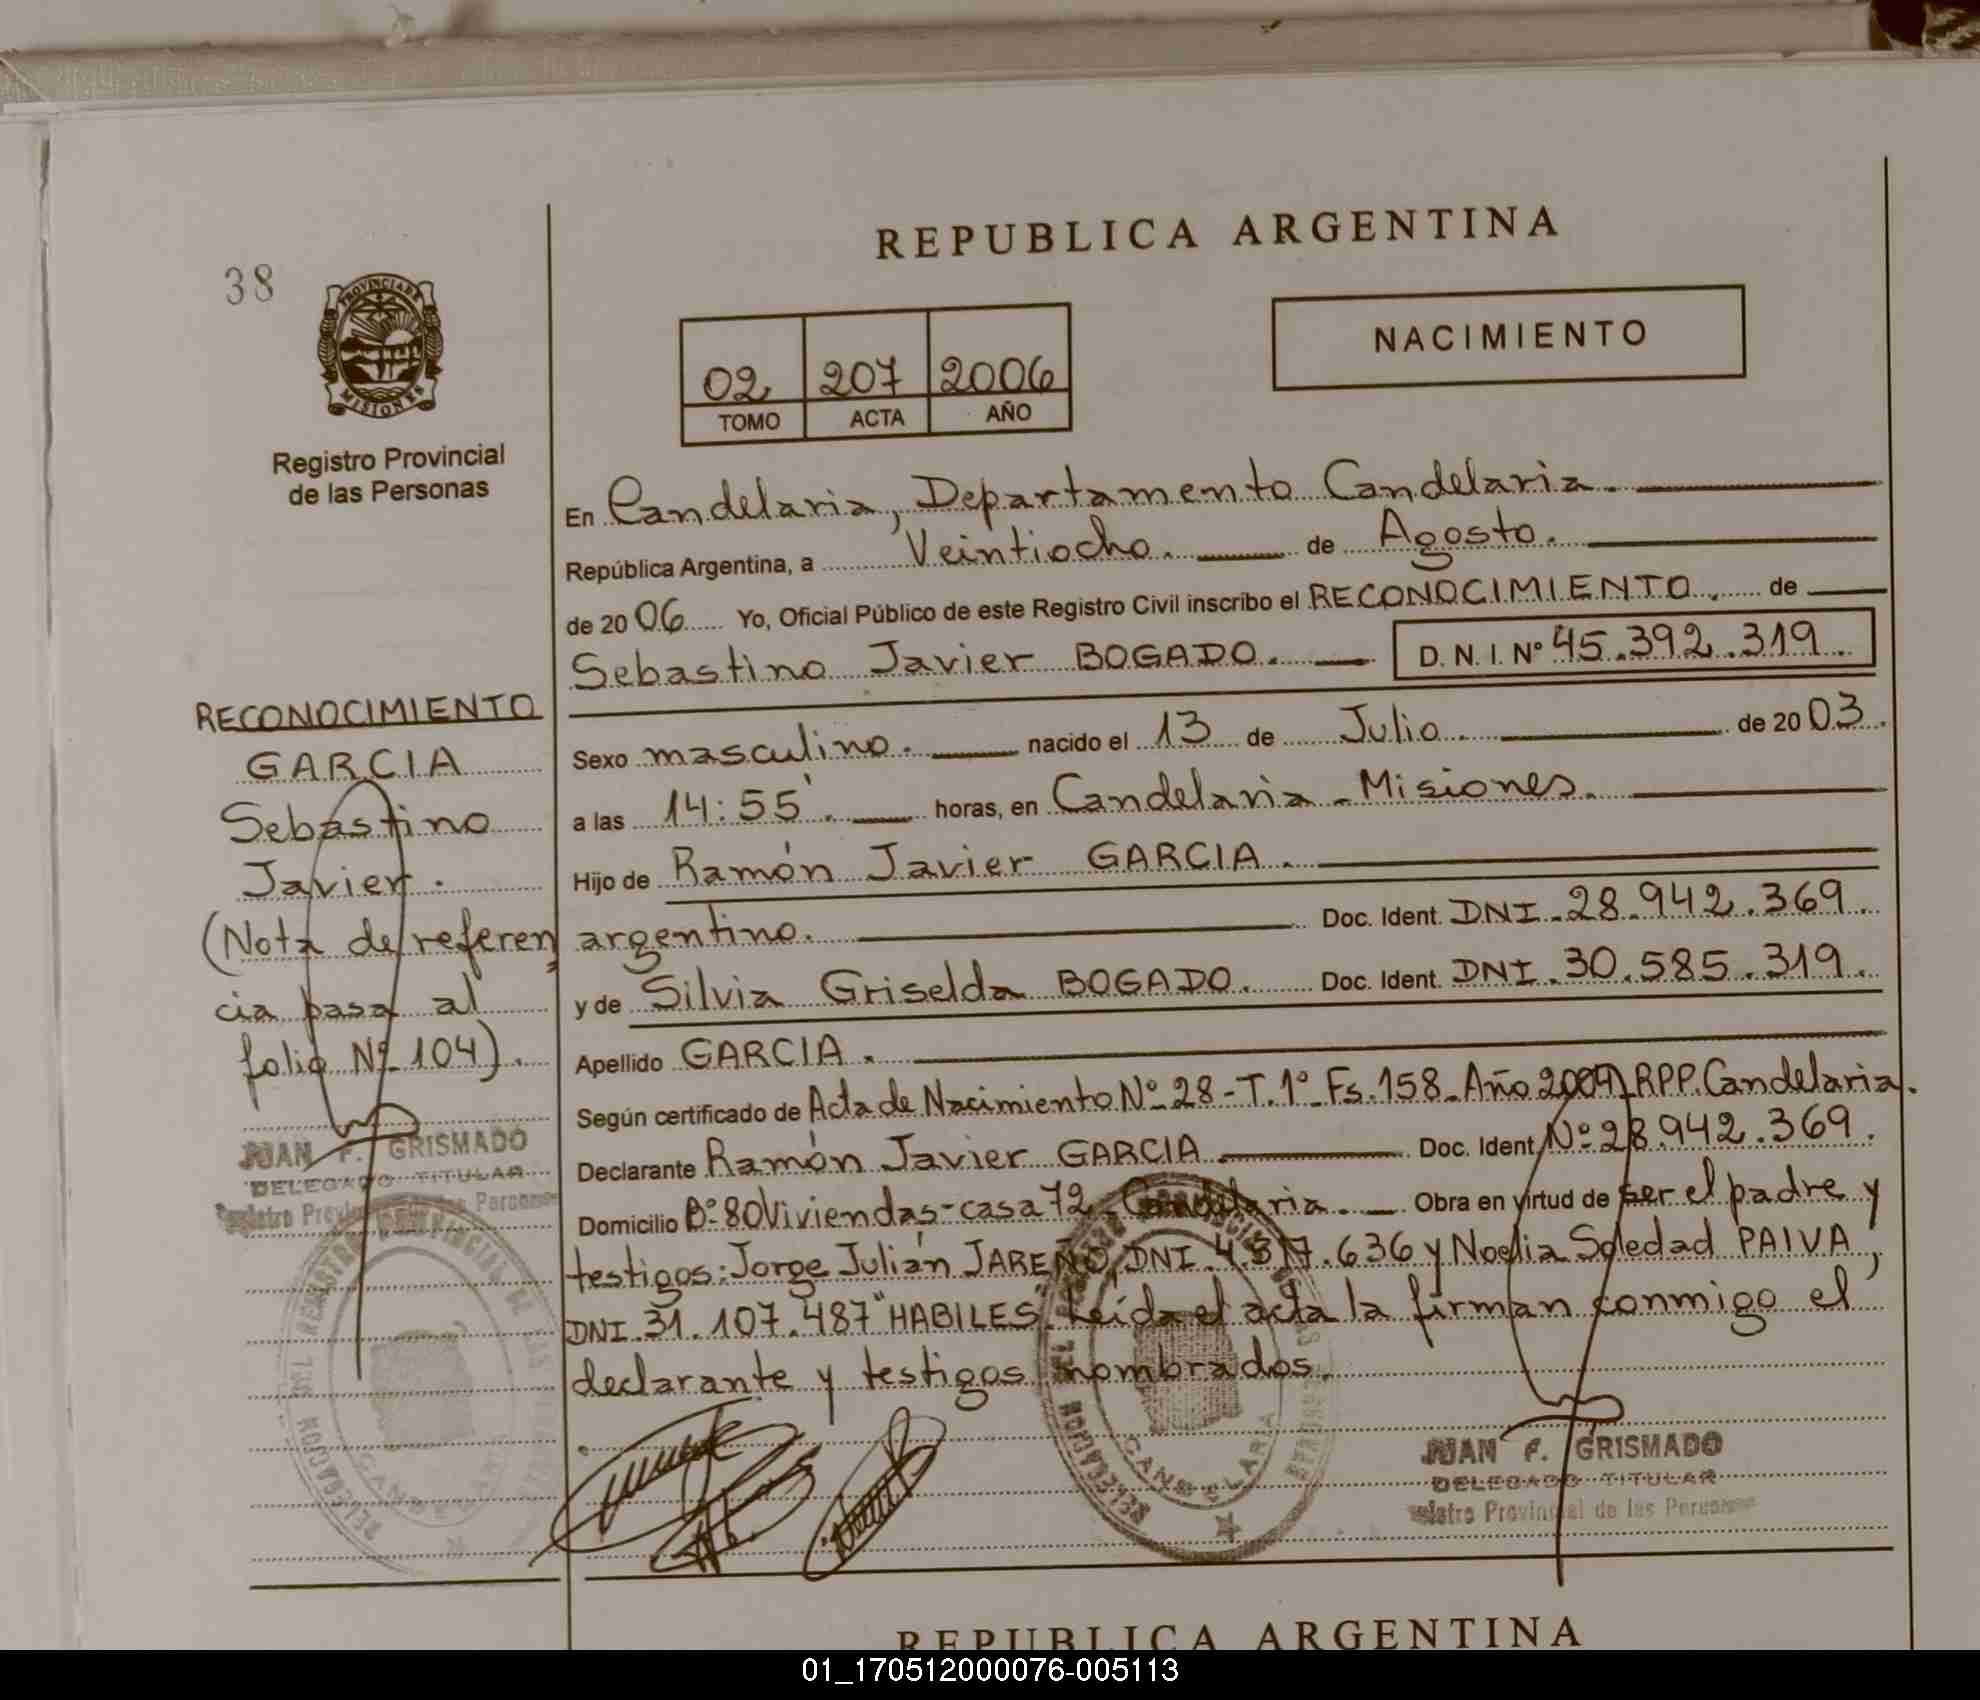 REPUBLICA ARGENTINA
38
PROVINCIA DE
MISIONES
Registro Provincial
de las Personas
NACIMIENTO
02 207 2006
TOMO ACTA AÑO
En Candelaria, Departamento Candelaria.
República Argentina, a Veintiocho. de Agosto.
de 2006 Yo, Oficial Público de este Registro Civil inscribo el RECONOCIMIENTO. de
Sebastino Javier BOGADO. D. N. I. Nº 45.392.319.
Sexo masculino. nacido el 13 de Julio. de 2003.
a las 14:55'. horas, en Candelaria - Misiones.
Hijo de Ramón Javier GARCIA.
argentino. Doc. Ident. DNI. 28.942.369.
y de Silvia Griselda BOGADO. Doc. Ident. DNI. 30.585.319.
Apellido GARCIA.
Según certificado de Acta de Nacimiento Nº 28 - T. 1º Fs. 158. Año RPP. Candelaria.
Declarante Ramón Javier GARCIA Doc. Ident. Nº 28.942.369.
Domicilio Bº 80 Viviendas - casa 72 - Candelaria. Obra en virtud de ser el padre y
testigos: Jorge Julián JAREÑO, DNI. 636 y Noelia Soledad PAIVA,
DNI. 31.107.487 "HABILES". Leída el acta la firman conmigo el
declarante y testigos nombrados.
RECONOCIMIENTO
GARCIA
Sebastino
Javier.
(Nota de referen
cia pasa al
folio Nº 104).
JUAN F. GRISMADO
DELEGADO TITULAR
Registro Provincial de las Personas
REGISTRO PROVINCIAL DE LAS PERSONAS
DELEGACION
CANDELARIA
DELEGACION
CANDELARIA
JUAN F. GRISMADO
DELEGADO TITULAR
Registro Provincial de las Personas
REPUBLICA ARGENTINA
01_170512000076-005113